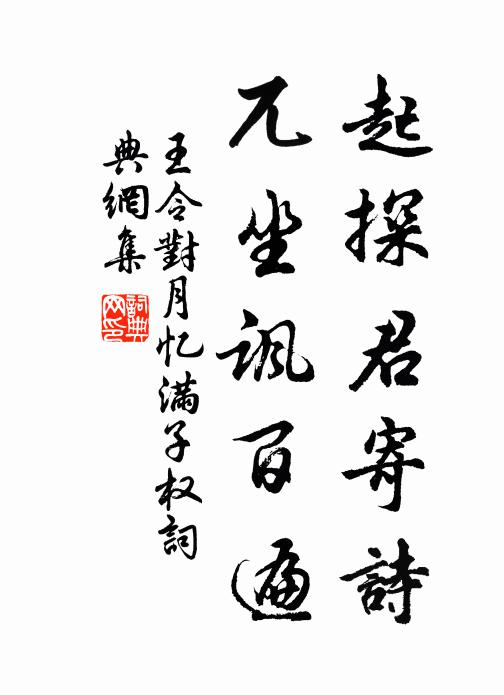 起探君寄詩
兀坐諷百遍
王令對月忆满子权詞
典網集
詞典网印